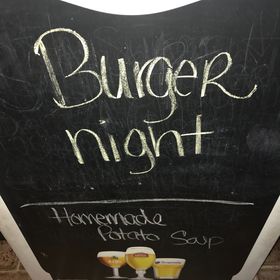 Burger
night
Homemade
Potato Soup